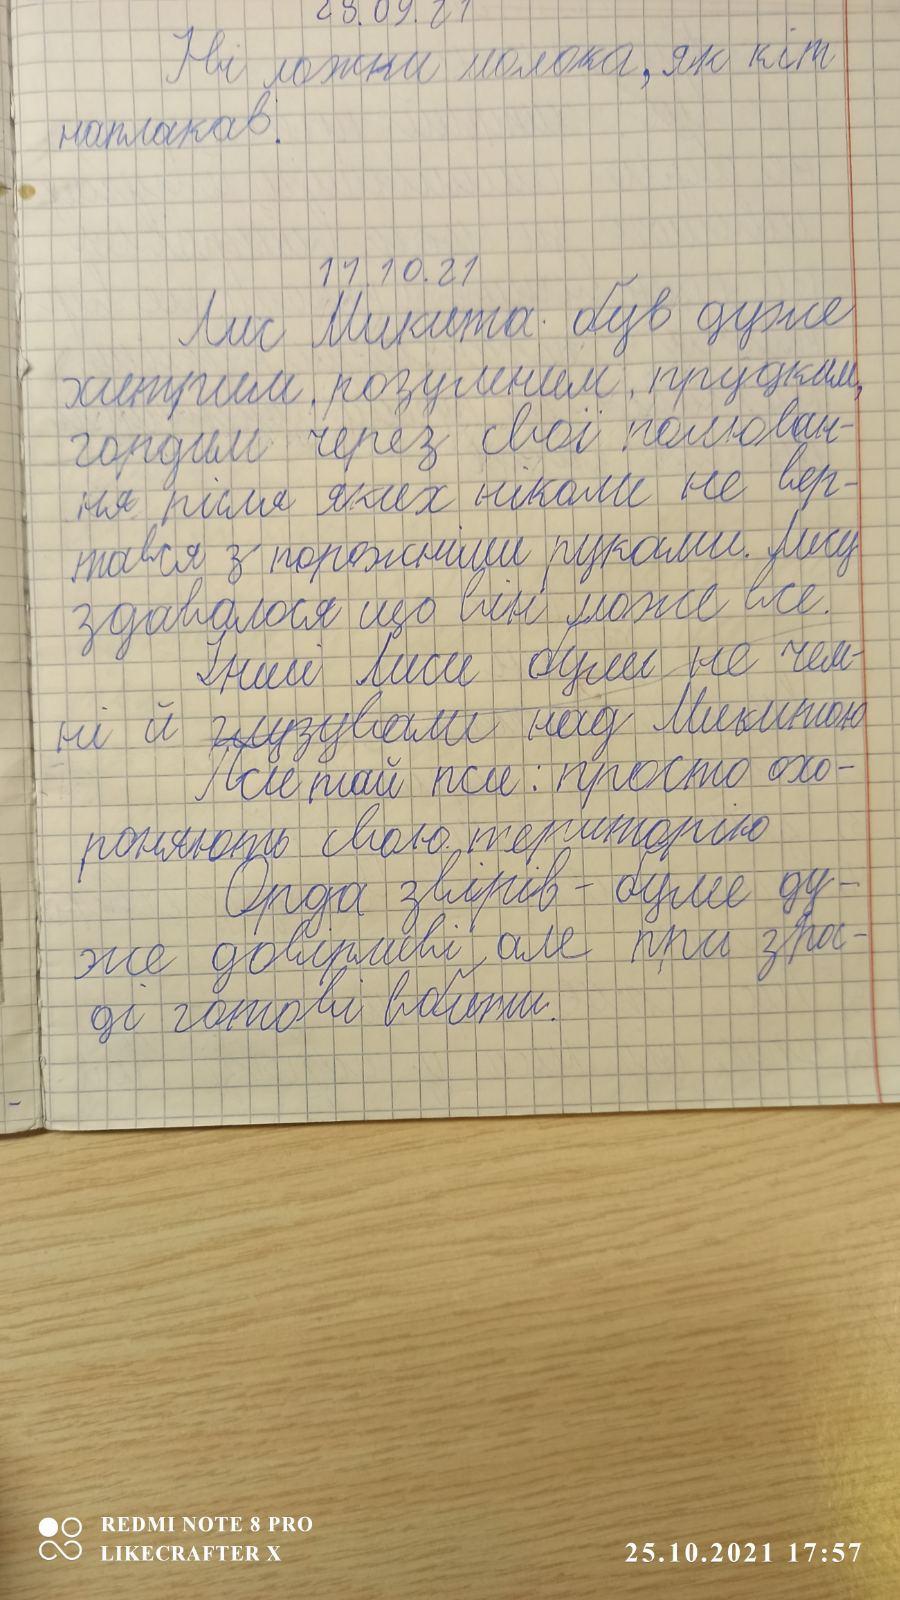 28.09.21
Дві ложки молока, як кіт
наплакав.
11.10.21
Лис Микита був дуже
хитрим, розумним, прудким,
гордим через свої полюван-
ня після яких ніколи не вер-
тався з порожніми руками. Лису
здавалося що він може все.
Інші Лиси були не чем-
ні й глузували над Микитою
Пси тай пси: просто охо-
роняють свою територію
Орда звірів - були ду-
же довірливі, але при зра-
ді готові вбити.
REDMI NOTE 8 PRO
LIKECRAFTER X
25.10.2021 17:57